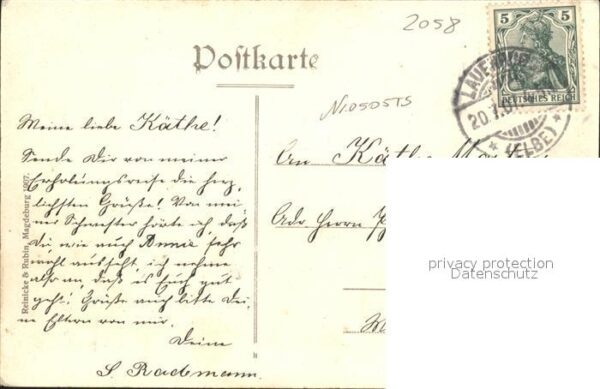 2058
Postkarte
5 5
DEUTSCHES REICH
LAUENBURG
20.7.07
* (ELBE) *
N1050575
Meine liebe Käthe!
Sende Dir von meiner
Erholungsreise die herz-
lichsten Grüße! Von mei-
ner Schwester hörte ich, daß
Du wie auch Annie sehr
wohl aussieht, ich nehme
also an daß es Euch gut
geht! Grüße auch bitte Dei-
ne Eltern von mir.
Deine
S. Rademann.
An Käthe
Adr. Herrn
Reinicke & Rubin, Magdeburg 1907.
privacy protection
Datenschutz